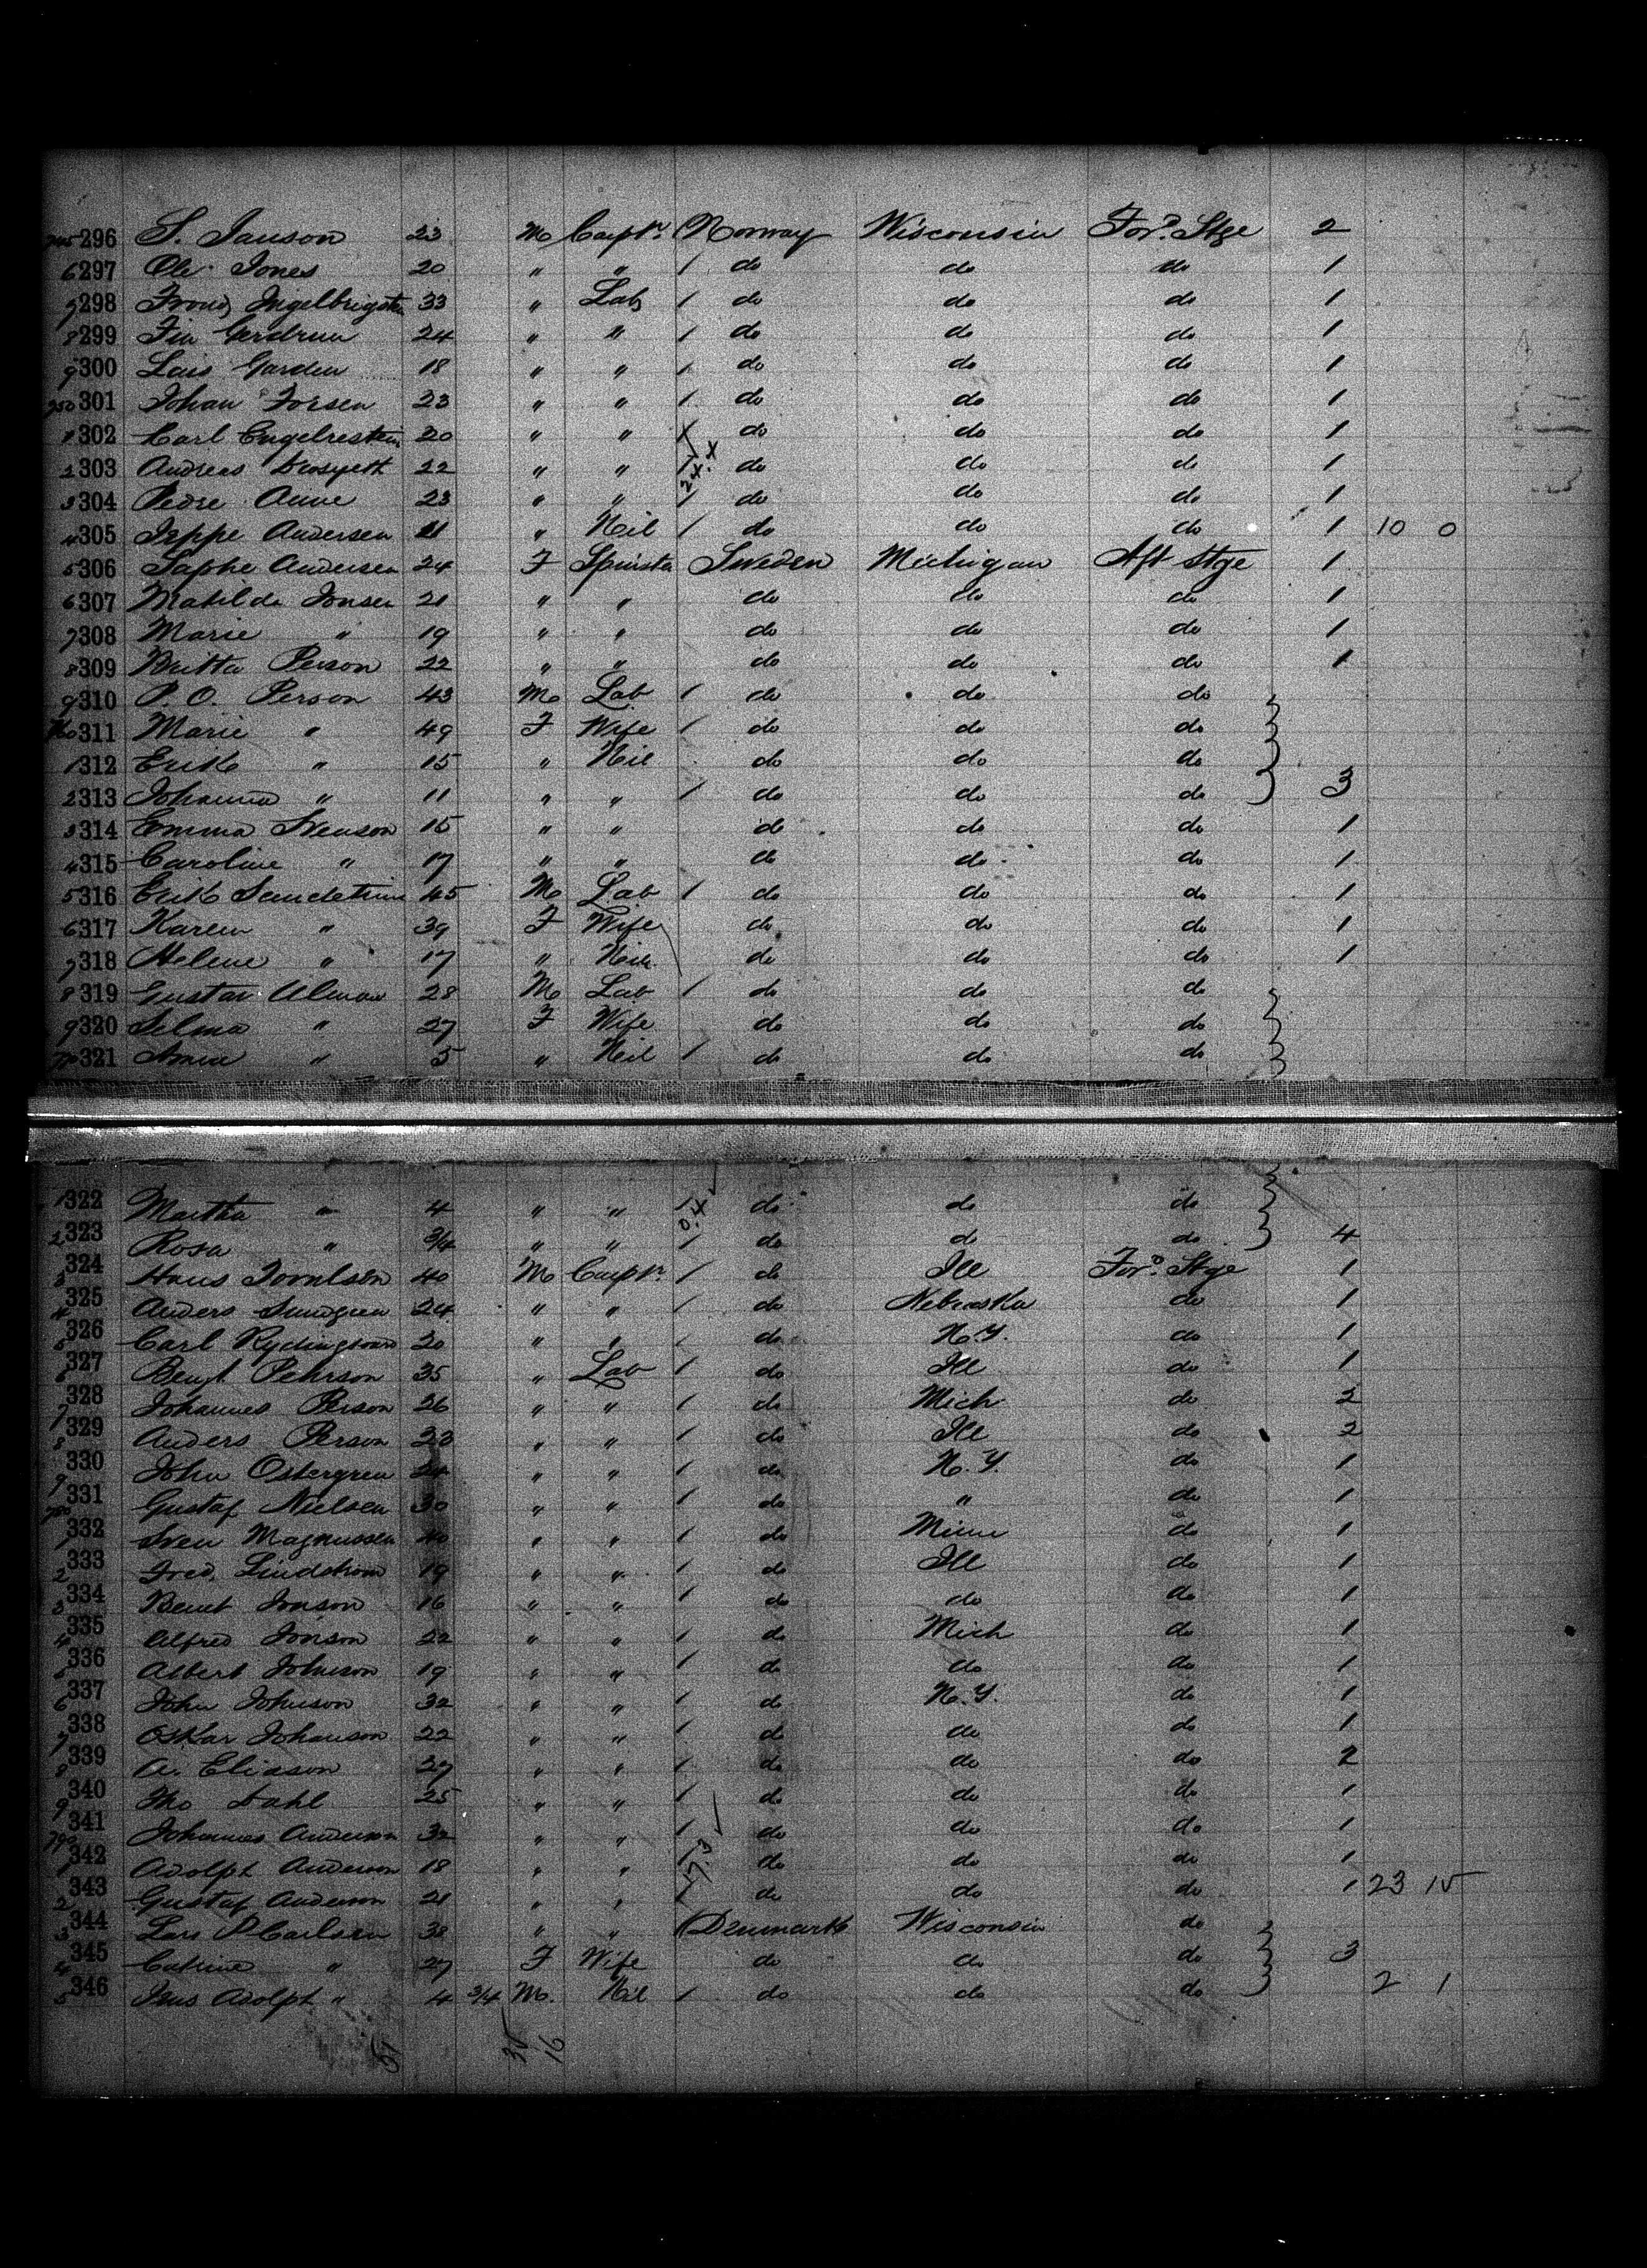 745 296 S. Janson 23 M Carptr. Norway Wisconsin For.d Stge 2
6 297 Ole Jones 20 " " 1 do do do 1
7 298 33 " Lab 1 do do do 1
8 299 24 " " 1 do do do 1
9 300 Lars Garden 18 " " 1 do do do 1
750 301 Johan Forsen 23 " " 1 do do do 1
1 302 Carl 20 " " 1 do do do 1
2 303 Andreas 22 " " 1 do do do 1
3 304 Pedre Anne 23 " " 1 do do do 1
4 305 Jeppe Andersen 11 " Neil 1 do do do 1 10 0
5 306 Saphe Andersen 24 F Spinster Sweden Michigan Aft Stge 1
6 307 Matilde Jonsen 21 " " do do do 1
7 308 Marie " 19 " " do do do 1
8 309 Britta Person 22 " " do do do 1
9 310 P. O. Person 43 M Lab 1 do do do
760 311 Marie " 49 F Wife 1 do do do
1 312 Erik " 15 " Neil do do do
2 313 Johanna " 11 " " 1 do do do 3
3 314 Emma Svenson 15 " " do do do 1
4 315 Caroline " 17 " " do do do 1
5 316 Erik 45 M Lab 1 do do do 1
6 317 Karen " 39 F Wife do do do 1
7 318 Helene " 17 " Neil do do do 1
8 319 Gustav Alman 28 M Lab 1 do do do
9 320 Selma " 27 F Wife do do do
770 321 Anna " 5 " Neil 1 do do do
1 322 Martha " 4 " " 1 do do do
2 323 Rosa " 3/4 " " 1 do do do 4
3 324 Hans 40 M Carptr. 1 do Ill For.d Stge 1
4 325 Anders Sundgren 24 " " 1 do Nebraska do 1
5 326 Carl 20 " " 1 do N.Y. do 1
6 327 Bengt Pehrson 35 " Lab 1 do Ill do 1
7 328 Johannes Person 26 " " 1 do Mich do 2
8 329 Anders Person 23 " " 1 do Ill do 2
9 330 John Ostergren 24 " " 1 do N.Y. do 1
780 331 Gustaf Nielsen 30 " " 1 do " do 1
1 332 Sven Magnussen 40 " " 1 do Minn do 1
2 333 Fred. Lindstrom 19 " " 1 do Ill do 1
3 334 Bernt Jonson 16 " " 1 do do do 1
4 335 Alfred Jonson 22 " " 1 do Mich do 1
5 336 Albert Johnson 19 " " 1 do do do 1
6 337 John Johnson 32 " " 1 do N.Y. do 1
7 338 Oskar Johanson 22 " " 1 do do do 1
8 339 A. Eliason 27 " " 1 do do do 2
9 340 Tho Dahl 25 " " 1 do do do 1
790 341 Johannes Anderson 32 " " 1 do do do 1
1 342 Adolph Anderson 18 " " 1 do do do 1
2 343 Gustaf Anderson 21 " " 1 do do do 1 23 15
3 344 Lars P Carlsen 38 " " 1 Denmark Wisconsin do
4 345 Catrine " 27 F Wife do do do 3
5 346 Jens Adolph " 4 3/4 M. Neil 1 do do do 2 1
51 35 16